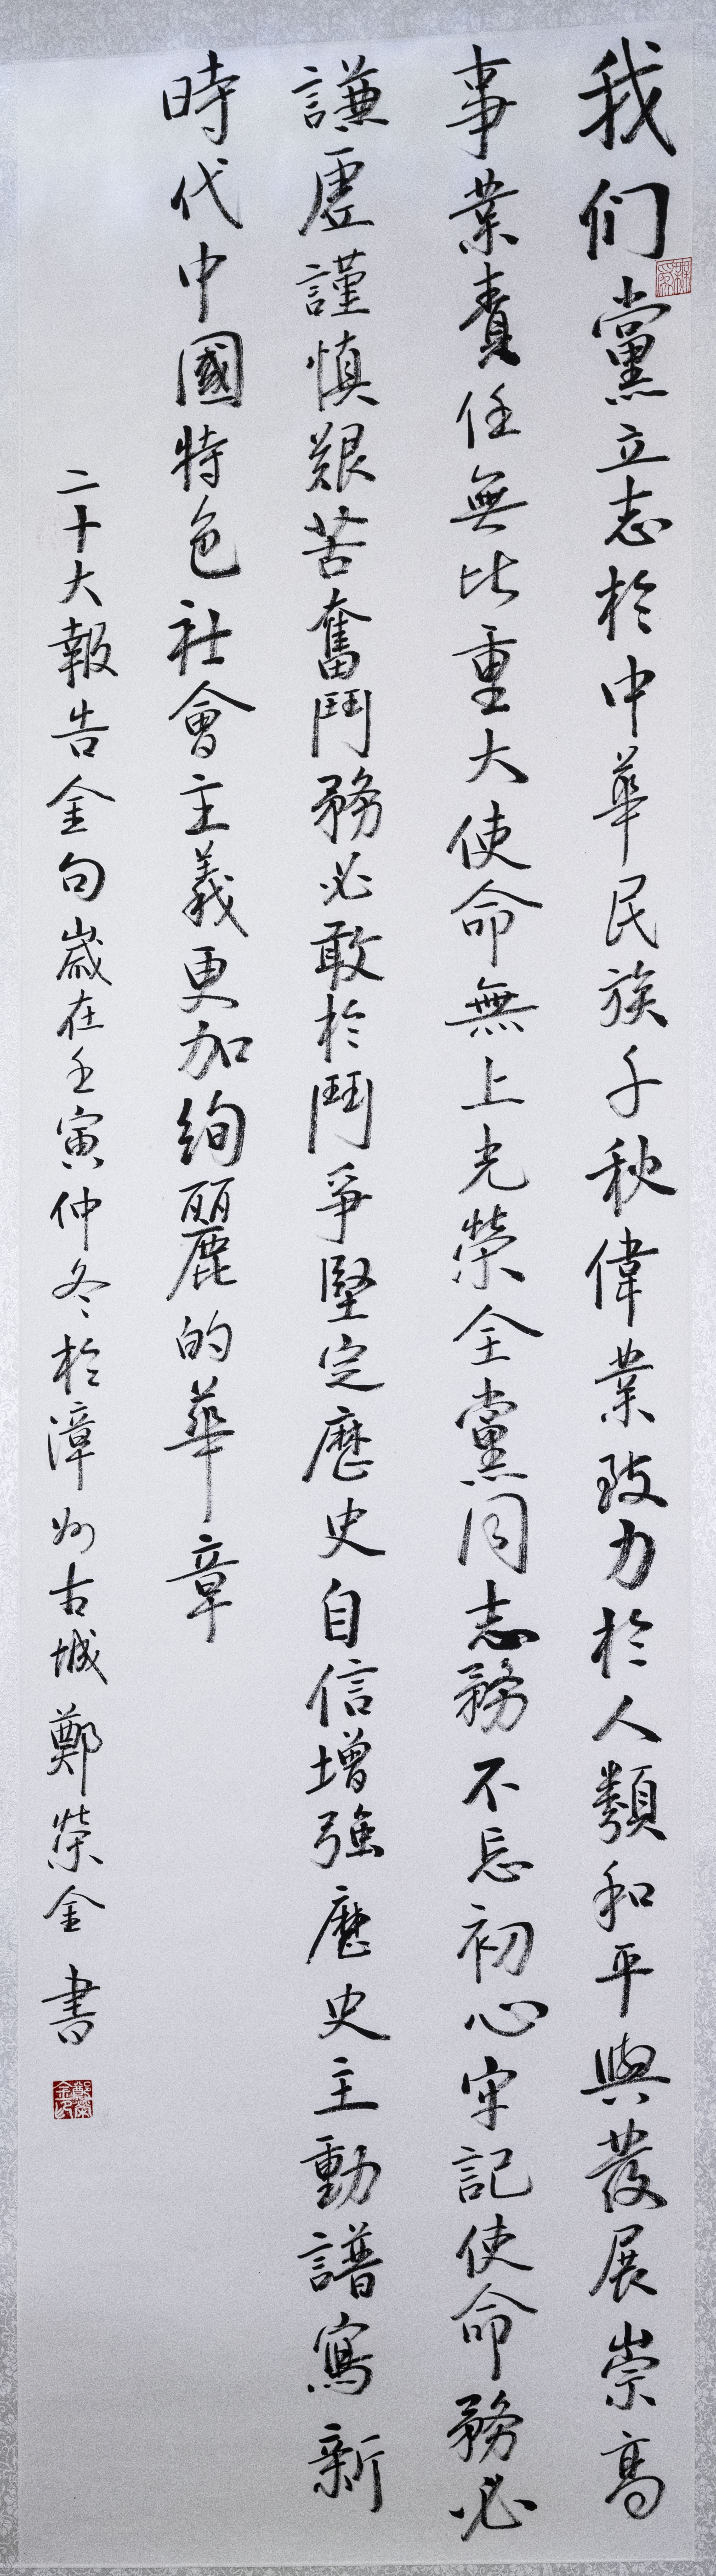 我们黨立志於中華民族千秋偉業致力於人類和平與發展崇高
事業責任無比重大使命無上光榮全黨同志務不忘初心牢記使命務必
謙虛謹慎艱苦奮鬥務必敢於鬥爭堅定歷史自信增強歷史主動譜寫新
時代中國特色社會主義更加絢麗的華章
二十大報告金句歲在壬寅仲冬於漳州古城鄭榮金書